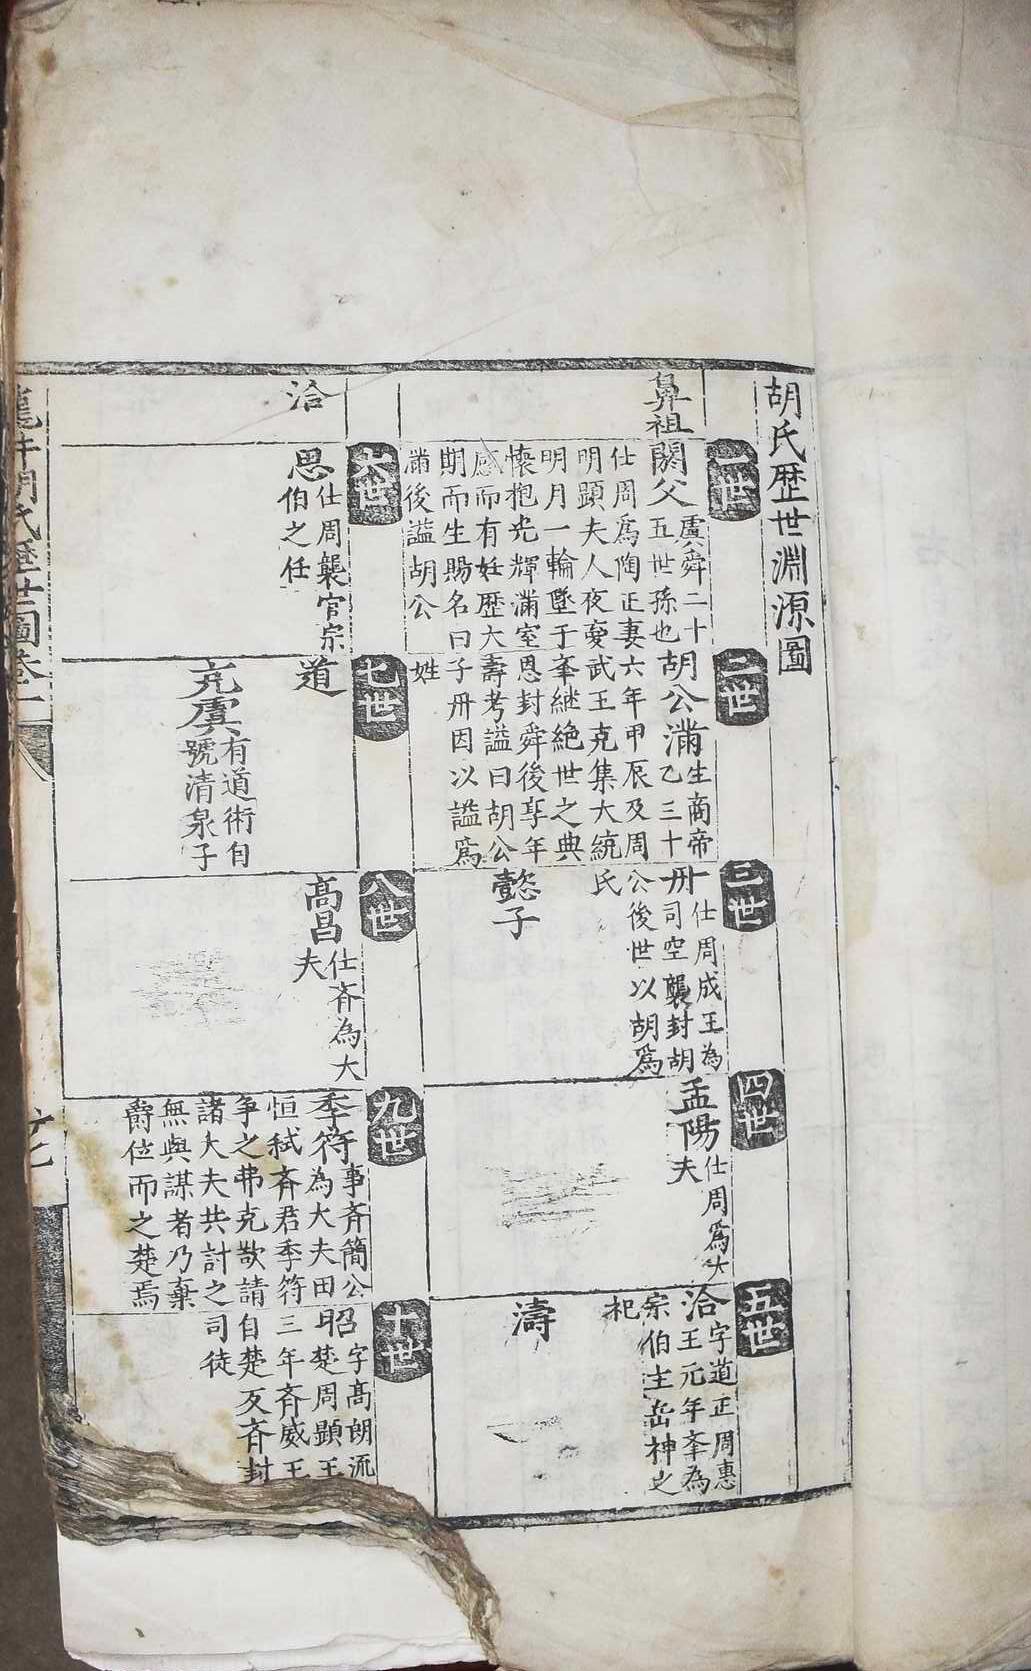 胡氏歷世淵源圖
一世
鼻祖
閼父
虞舜二十
五世孫也
仕周爲陶正妻
明顕夫人夜夣
明月一輪墜于
懐抱光輝滿室
感而有妊歷大
期而生賜名曰
滿後謚胡公
二世
胡公滿
生商帝
乙三十
六年甲辰及周
武王克集大統
夆継絶世之典
恩封舜後享年
壽考謚曰胡公
子冊因以謚爲
姓
三世
冊
仕周成王為
司空襲封胡
公後世以胡爲
氏
懿子
四世
孟陽
仕周爲大
夫
五世
洽
字道正周惠
王元年夆為
宗伯主岳神之
祀
濤
六世
洽
思
仕周襲官宗
伯之任
七世
道
充虞
有道術自
號清泉子
八世
高昌
仕斉為大
夫
九世
季符
事斉簡公
為大夫田
恒弑斉君季符
争之弗克歎請
諸大夫共討之
無與謀者乃棄
爵位而之楚焉
十世
昭
字髙朗流
楚周顕王
三年斉威王
自楚反斉封
司徒
胡氏歷世圖卷一